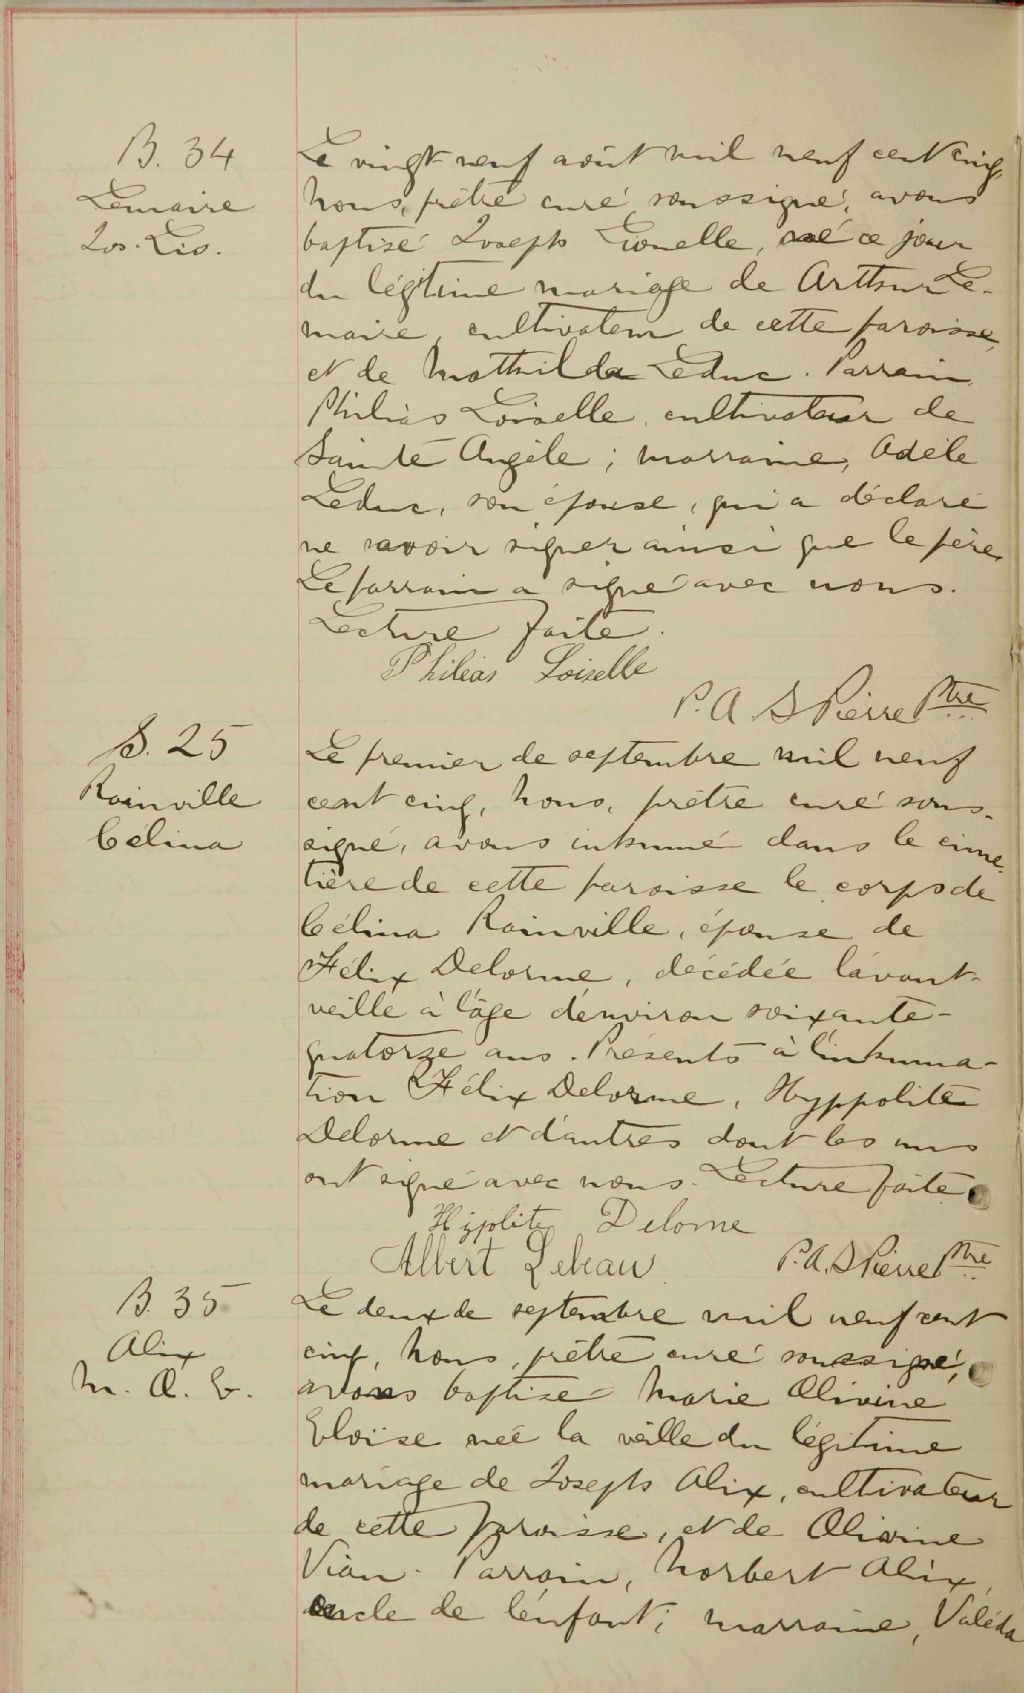 B. 34
Lemaire
Jos. Lio.
Le vingt neuf août mil neuf cent cinq,
Nous, prêtre curé soussigné, avons
baptisé Joseph Lionelle, né ce jour
du légitime mariage de Arthur Le-
maire, cultivateur de cette paroisse,
et de Mathilda Leduc. Parrain,
Philias Loiselle, cultivateur de
Sainte Angèle ; marraine, Adèle
Leduc, son épouse, qui a déclaré
ne savoir signer ainsi que le père.
Le parrain a signé avec nous.
Lecture faite.
Philéas Loiselle
P. A. St Pierre Ptre
S. 25
Rainville
Célina
Le premier de septembre mil neuf
cent cinq, Nous, prêtre curé sous-
signé, avons inhumé dans le cime-
tière de cette paroisse le corps de
Célina Rainville, épouse de
Félix Delorme, décédée l'avant-
veille à l'âge d'environ soixante-
quatorze ans. Présents à l'inhuma-
tion Félix Delorme, Hyppolite
Delorme et d'autres dont les uns
ont signé avec nous. Lecture faite
Hypolite Delorme
Albert Lebeau
P. A. St Pierre Ptre
B. 35
Alix
M. O. E.
Le deux de septembre mil neuf cent
cinq, Nous, prêtre curé soussigné,
avons baptisé Marie Olivine
Eloïse née la veille du légitime
mariage de Joseph Alix, cultivateur
de cette paroisse, et de Olivine
Viau. Parrain, Norbert Alix,
oncle de l'enfant ; marraine, Valéda